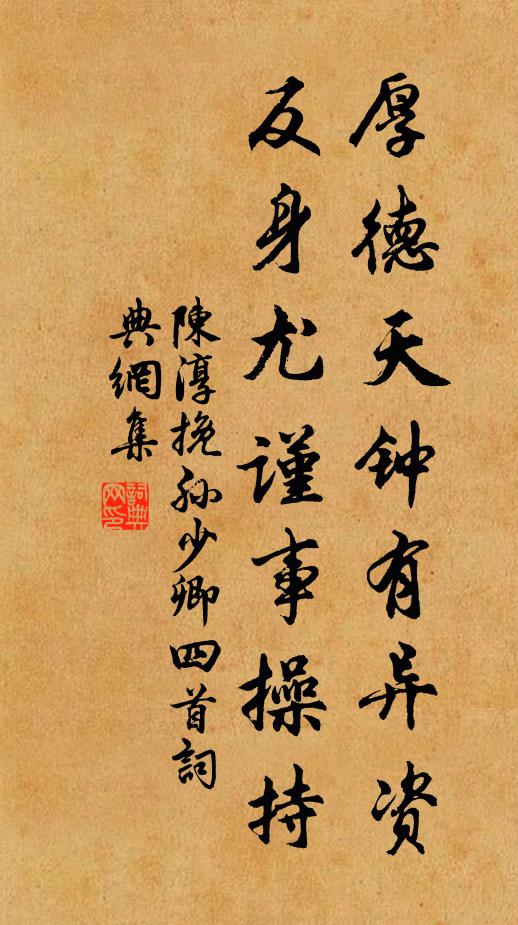 厚德天钟有异资
反身尤谨事操持
陳淳挽孙少卿四首詞
典網集
詞典
网印